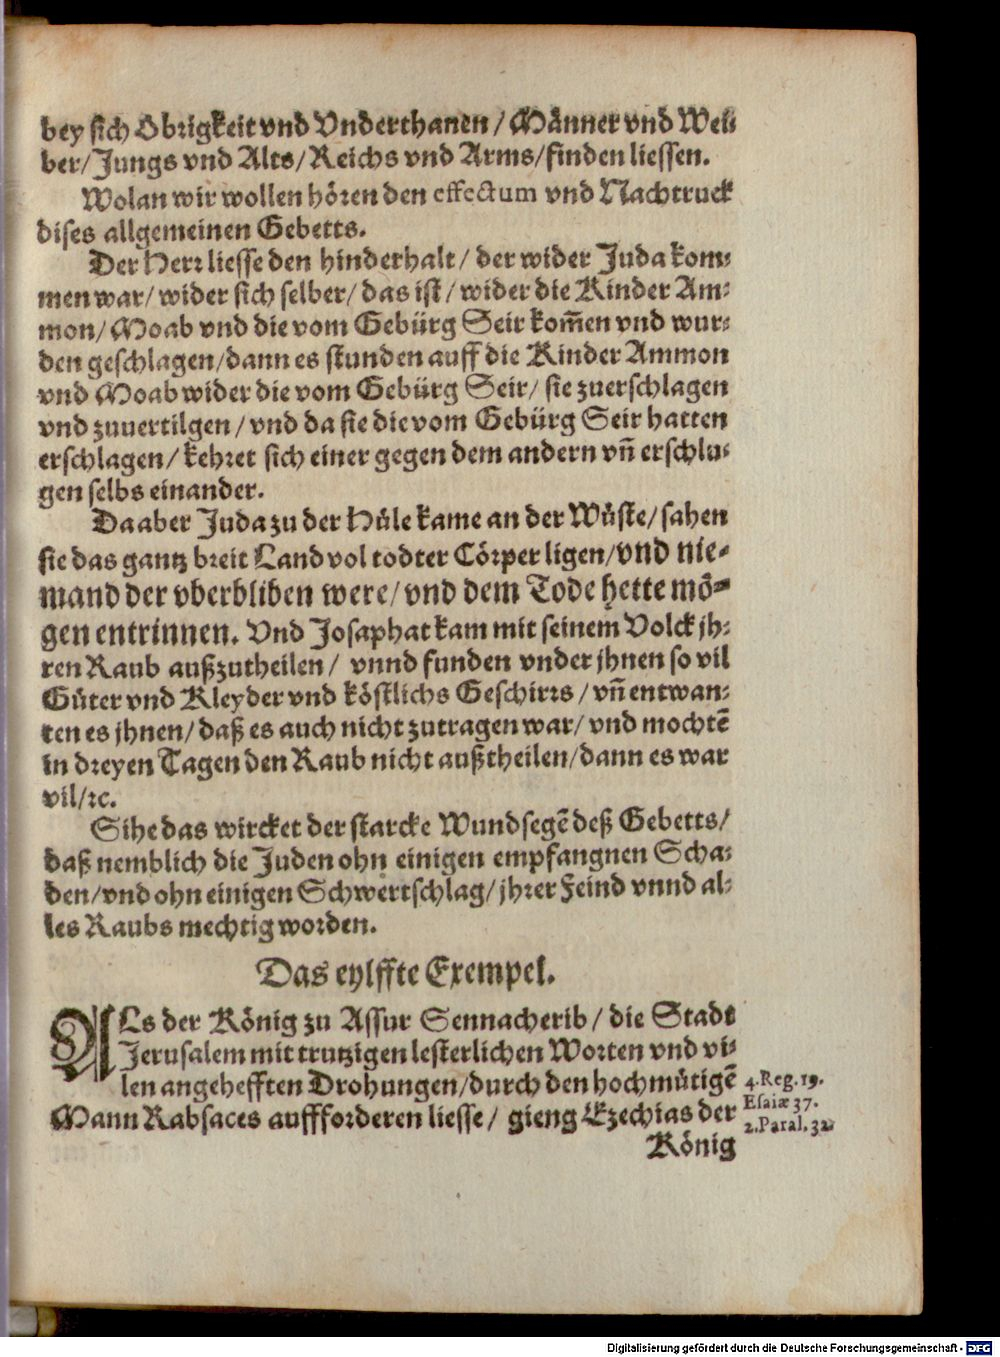 bey sich Obrigkeit vnd Vnderthanen / Männer vnd Wei⸗
ber / Jungs vnd Alts / Reichs vnd Arms / finden liessen.
Wolan wir wollen hören den effectum vnd Nachtruck
dises allgemeinen Gebetts.
Der Herr liesse den hinderhalt / der wider Juda kom⸗
men war / wider sich selber / das ist / wider die Kinder Am⸗
mon / Moab vnd die vom Gebürg Seir kom̃en vnd wur⸗
den geschlagen / dann es stunden auff die Kinder Ammon
vnd Moab wider die vom Gebürg Seir / sie zuerschlagen
vnd zuuertilgen / vnd da sie die vom Gebürg Seir hatten
erschlagen / kehret sich einer gegen dem andern vñ erschlu⸗
gen selbs einander.
Da aber Juda zu der Hüle kame an der Wüste / sahen
sie das gantz breit Land vol todter Cörper ligen / vnd nie⸗
mand der vberbliben were / vnd dem Tode hette mö⸗
gen entrinnen. Vnd Josaphat kam mit seinem Volck jh⸗
ren Raub außzutheilen / vnnd funden vnder jhnen so vil
Güter vnd Kleyder vnd köstlichs Geschirrs / vñ entwan⸗
ten es jhnen / daß es auch nicht zutragen war / vnd mochtẽ
in dreyen Tagen den Raub nicht außtheilen / dann es war
vil / ꝛc.
Sihe das wircket der starcke Wundsegẽ deß Gebetts /
daß nemblich die Juden ohn einigen empfangnen Scha⸗
den / vnd ohn einigen Schwertschlag / jhrer Feind vnnd al⸗
les Raubs mechtig worden.
Das eylffte Exempel.
ALs der König zu Assur Sennacherib / die Stadt
Jerusalem mit trutzigen lesterlichen Worten vnd vi⸗
len angehefften Drohungen / durch den hochmütigẽ
Mann Rabsaces auffforderen liesse / gieng Ezechias der
König
4. Reg. 19.
Esaiæ 37.
2. Paral. 32.
Digitalisierung gefördert durch die Deutsche Forschungsgemeinschaft - DFG